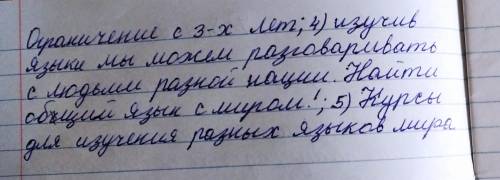 Ограничение с 3-х лет; 4) изучив
языки мы можем разговаривать
с людьми разной нации. Найти
общий язык с миром!; 5) Курсы
для изучения разных языков мира